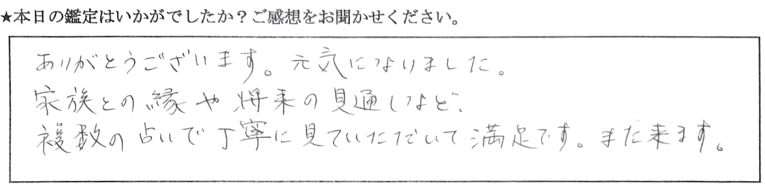 ★本日の鑑定はいかがでしたか？ご感想をお聞かせください。
ありがとうございます。元気になりました。
家族との縁や将来の見通しなど、
複数の占いで丁寧に見ていただいて満足です。また来ます。